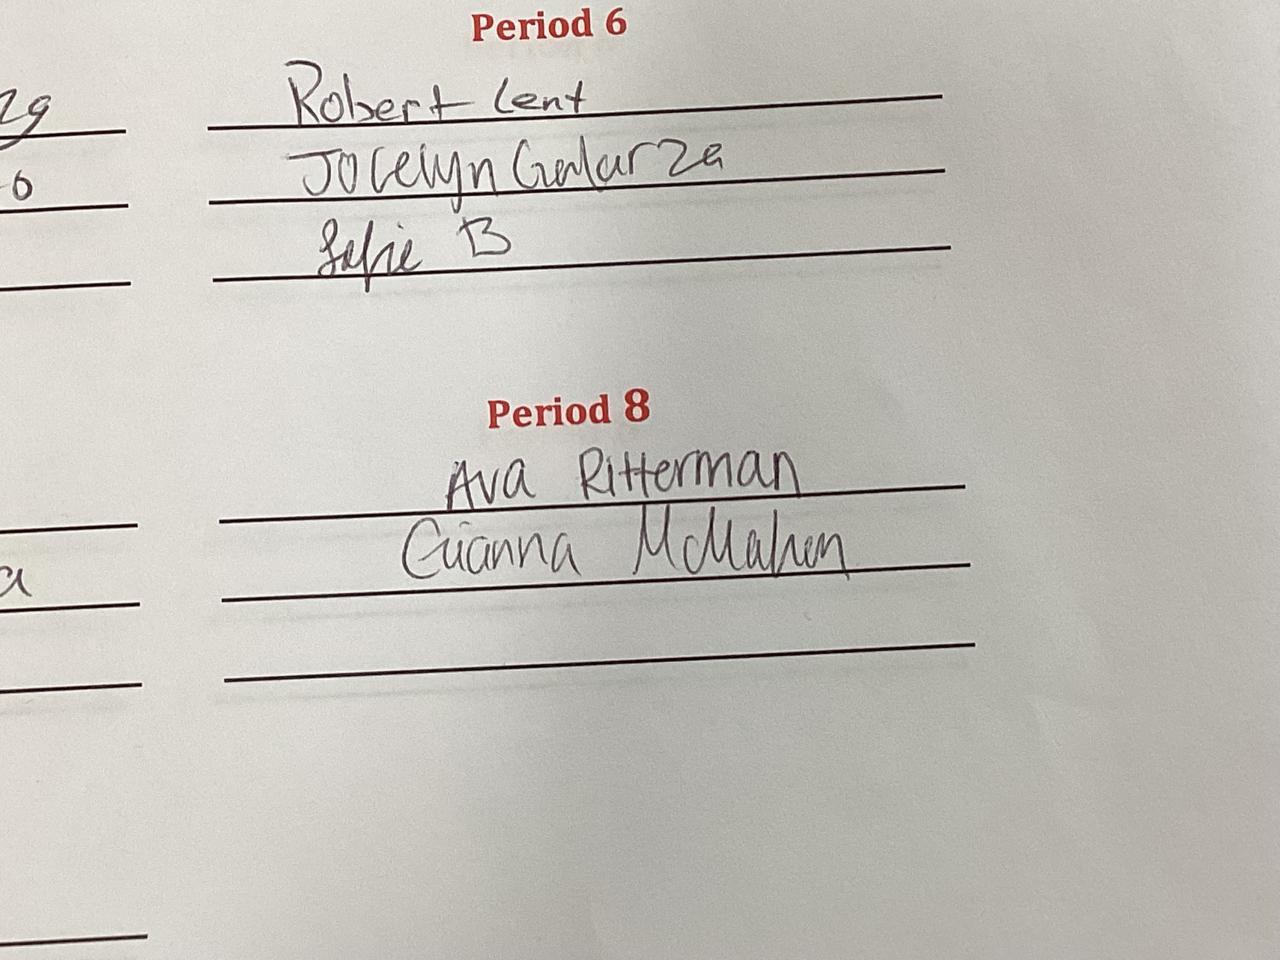 Period 6
Robert Lent
Jocelyn Galarza
Sofie B
Period 8
Ava Ritterman
Gianna McMahon